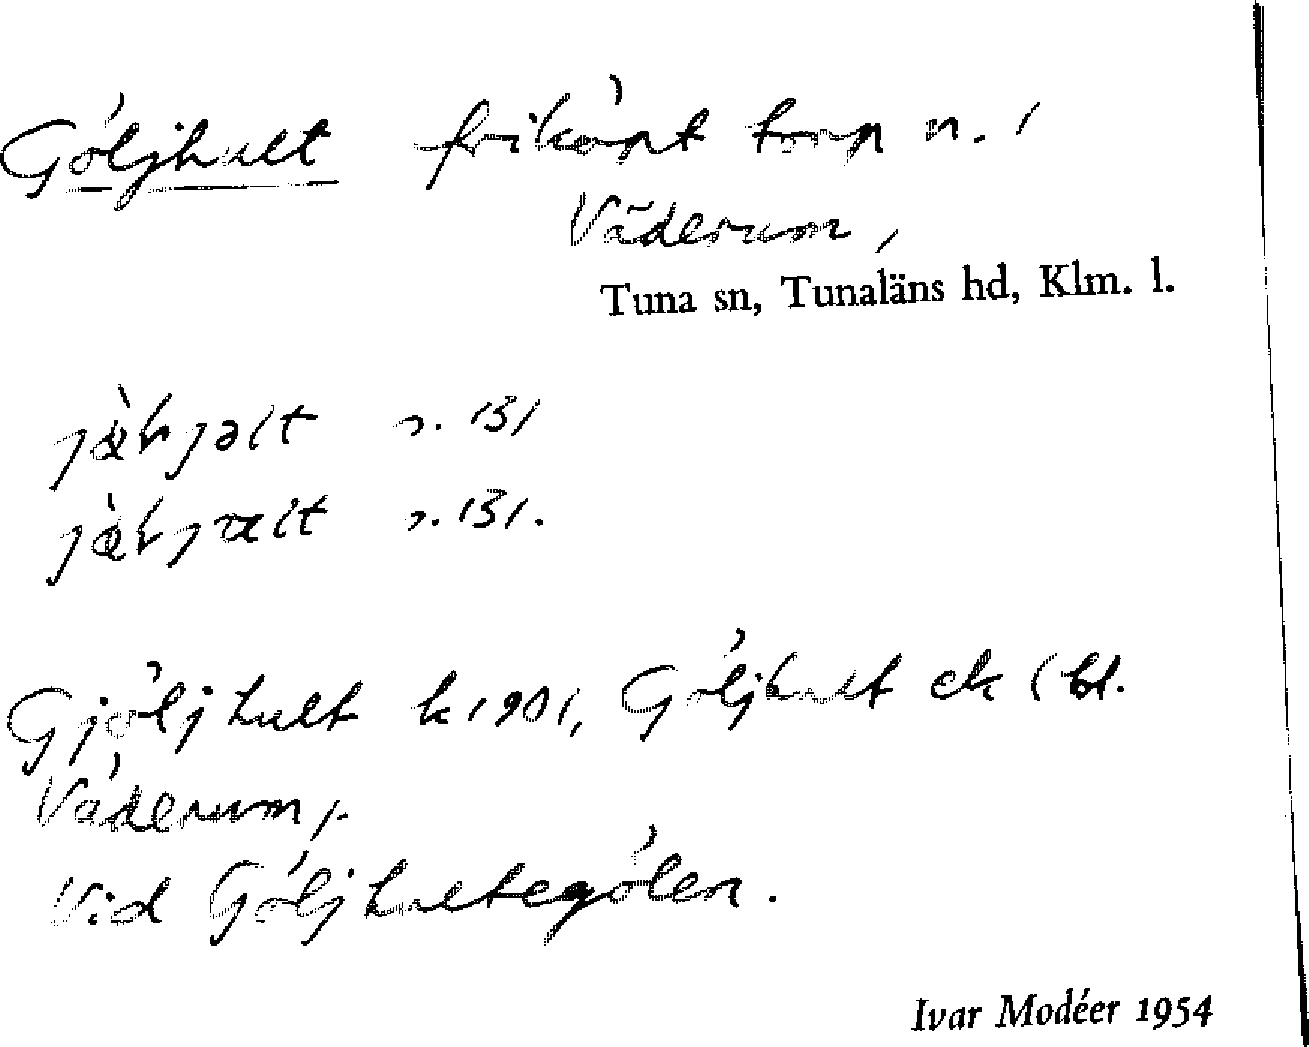 Göljhult friköpt torp n. i
Väderum,
Tuna sn, Tunaläns hd, Klm. l.
s. 131
s. 131.
Gjöljhult k 1901, Göljhult ek (bl.
Väderum).
Vid Göljhultegölen.
Ivar Modéer 1954